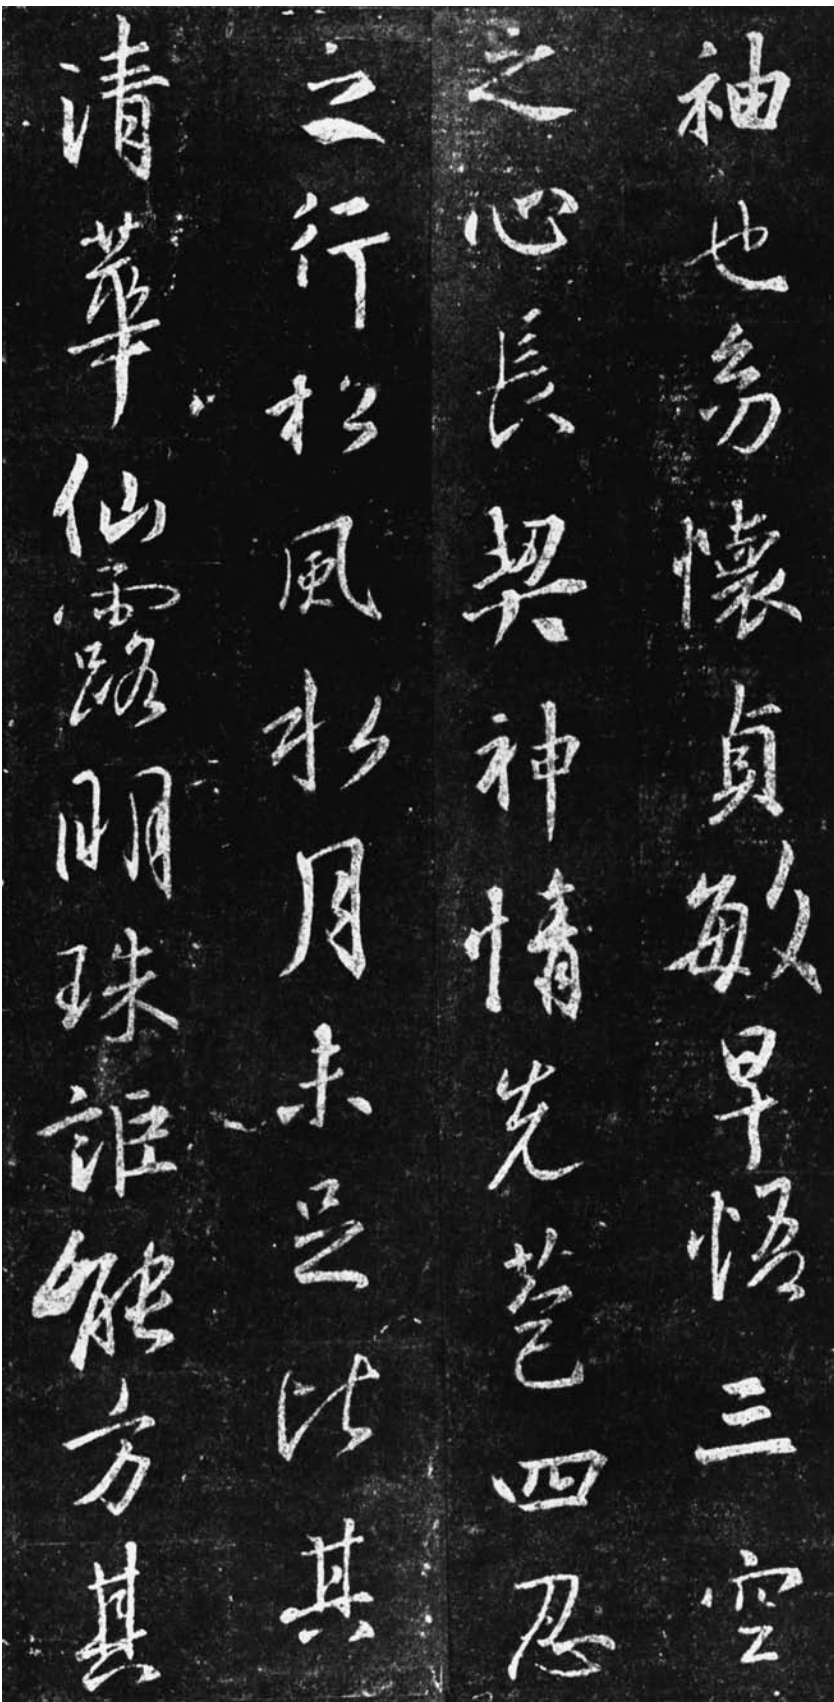 袖也幼懷貞敏早悟三空
之心長契神情先苞四忍
之行松風水月未足比其
清華仙露明珠詎能方其